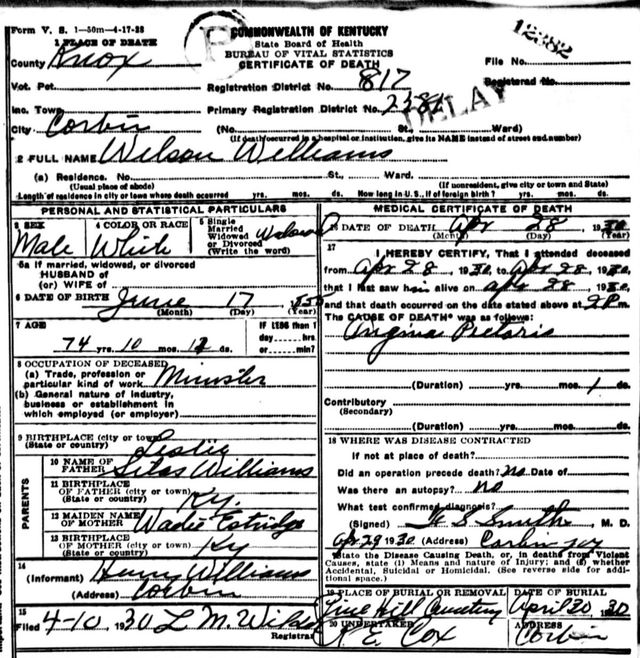 Form V. S. 1—50m—4-17-28
1 PLACE OF DEATH
COMMONWEALTH OF KENTUCKY
State Board of Health
BUREAU OF VITAL STATISTICS
CERTIFICATE OF DEATH
12382
County Knox
File No.
Vot. Pct.
Registration District No. 817
Registered No.
Inc. Town
Primary Registration District No. 2381
DELAY
City Corbin (No. St., Ward)
(If death occurred in a hospital or institution, give its NAME instead of street and number)
2 FULL NAME Wilson Williams
(a) Residence. No. St., Ward.
(Usual place of abode) (If nonresident, give city or town and State)
Length of residence in city or town where death occurred yrs. mos. ds. How long in U. S., if of foreign birth? yrs. mos. ds.
PERSONAL AND STATISTICAL PARTICULARS
3 SEX
Male
4 COLOR OR RACE
White
5 Single
Married
Widowed
or Divorced
(Write the word)
Widowed
5a If married, widowed, or divorced
HUSBAND of
(or) WIFE of
6 DATE OF BIRTH June 17
(Month) (Day) (Year)
7 AGE
74 yrs. 10 mos. ds.
IF LESS than 1
day hrs.
or min?
8 OCCUPATION OF DECEASED
(a) Trade, profession or
particular kind of work Minister
(b) General nature of industry,
business or establishment in
which employed (or employer)
9 BIRTHPLACE (city or town) Leslie
(State or country)
PARENTS
10 NAME OF
FATHER Silas Williams
11 BIRTHPLACE
OF FATHER (city or town)
(State or country) Ky.
12 MAIDEN NAME
OF MOTHER Wadie Estridge
13 BIRTHPLACE
OF MOTHER (city or town)
(State or country) Ky
14
(Informant) Henry Williams
(Address) Corbin
15
Filed 4-10, 1930 L M. Wilds
Registrar
MEDICAL CERTIFICATE OF DEATH
16 DATE OF DEATH Apr 28 1930
(Month) (Day) (Year)
17
I HEREBY CERTIFY, That I attended deceased
from Apr 28, 1930, to Apr 28, 1930,
that I last saw him alive on apr 28, 1930,
and that death occurred on the date stated above at 2 P m.
The CAUSE OF DEATH* was as follows:
Angina Pectoris
(Duration) yrs. mos. 1 ds.
Contributory
(Secondary)
(Duration) yrs. mos. ds.
18 WHERE WAS DISEASE CONTRACTED
If not at place of death?
Did an operation precede death? no Date of
Was there an autopsy? no
What test confirmed diagnosis?
(Signed) Smith, M. D.
Apr 29 1930 (Address) Corbin Ky
*State the Disease Causing Death, or, in deaths from Violent
Causes, state (1) Means and nature of Injury; and (2) whether
Accidental, Suicidal or Homicidal. (See reverse side for addi-
tional space.)
19 PLACE OF BURIAL OR REMOVAL
Pine Hill Cemetery
DATE OF BURIAL
April 30 1930
20 UNDERTAKER
R. E. Cox
ADDRESS
Corbin